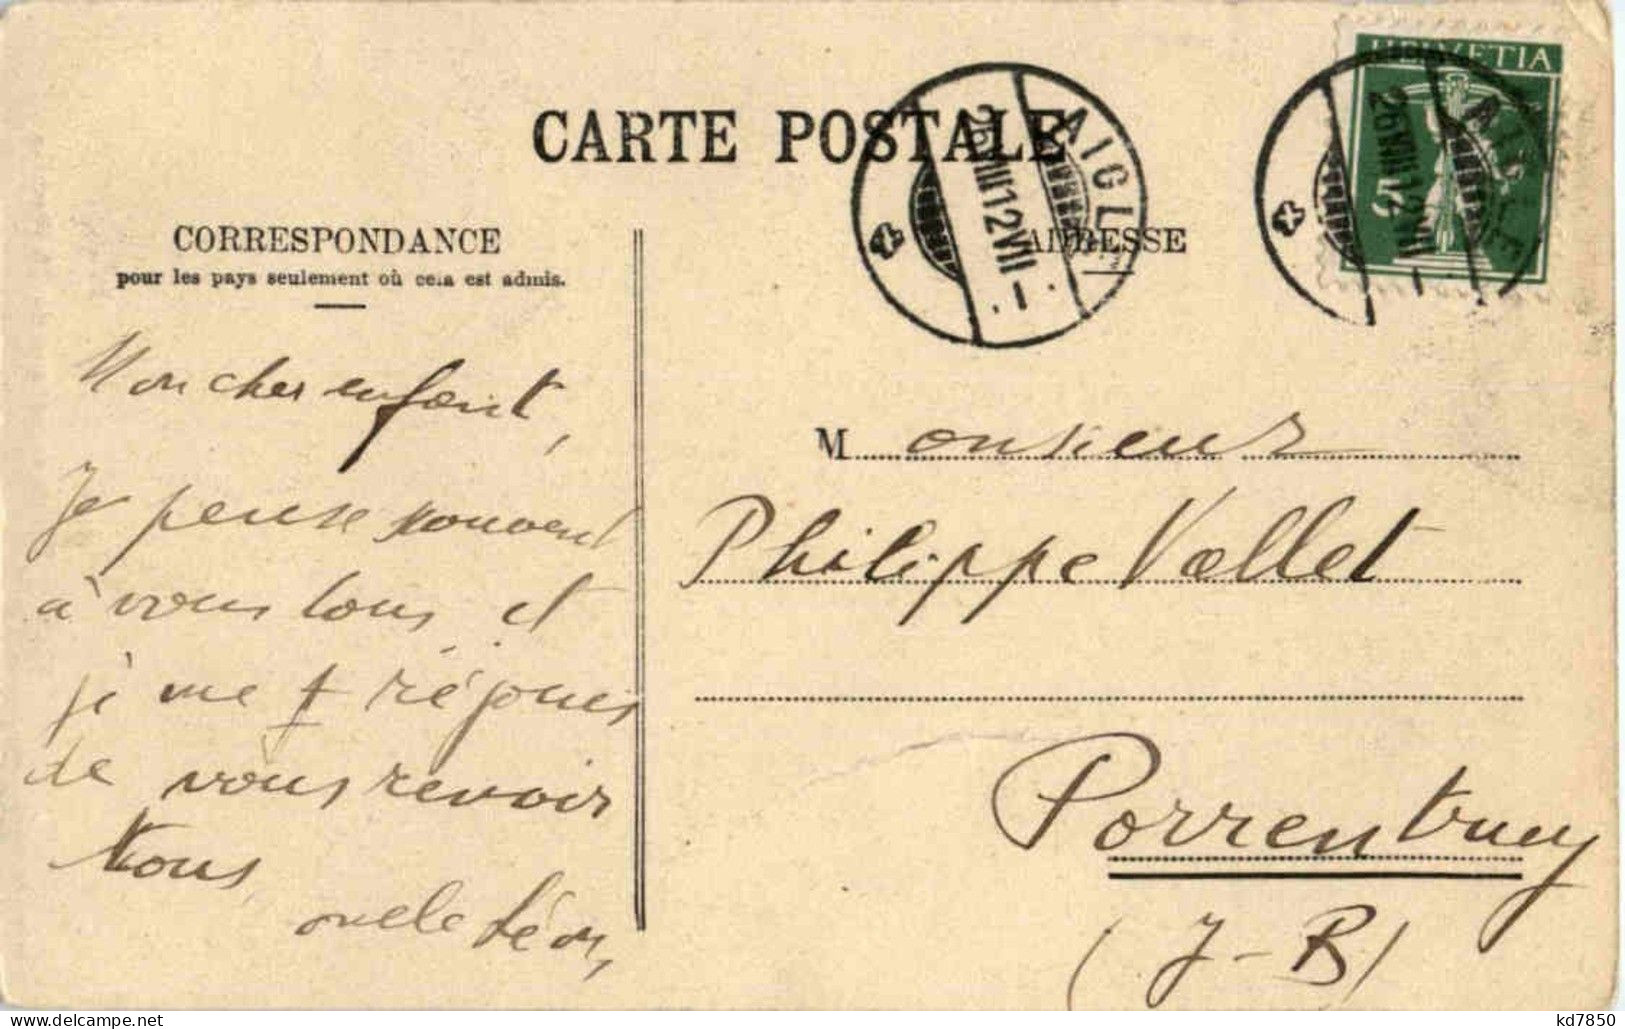 CARTE POSTALE
CORRESPONDANCE
pour les pays seulement où cela est admis.
ADRESSE
HELVETIA
5
AIGLE
26.VIII.12.VII-
AIGLE
26.VIII.12.VII-
Mon cher enfant,
Je pense souvent
à vous tous et
je me réjouis
de vous revoir
tous,
oncle Léon,
Monsieur
Philippe Vallet
Porrentruy
(J-B)
kd7850